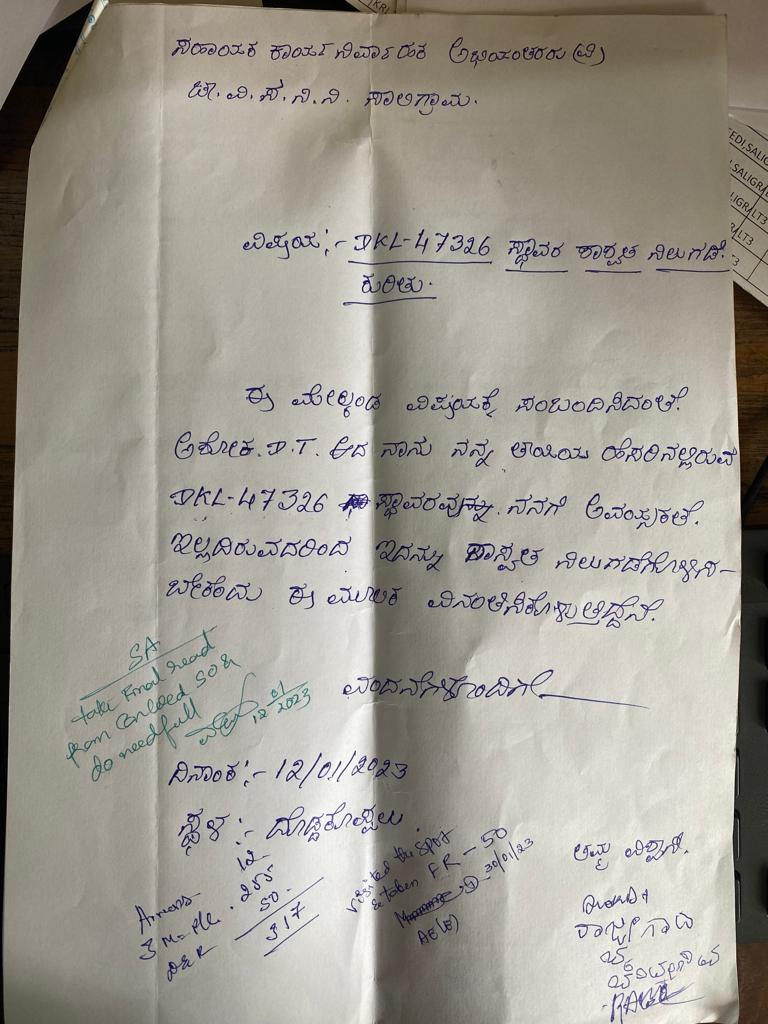 ಸಹಾಯಕ ಕಾರ್ಯನಿರ್ವಾಹಕ ಅಭಿಯಂತರರು (ವಿ)
ಚಾ. ವಿ. ಸ. ನಿ. ನಿ. ಸಾಲಿಗ್ರಾಮ.
ವಿಷಯ:- DKL-47326 ಸ್ಥಾವರ ಶಾಶ್ವತ ನಿಲುಗಡೆ.
ಕುರಿತು.
ಈ ಮೇಲ್ಕಂಡ ವಿಷಯಕ್ಕೆ ಸಂಬಂದಿಸಿದಂತೆ.
ಅಶೋಕ. D.T. ಆದ ನಾನು ನನ್ನ ತಾಯಿಯ ಹೆಸರಿನಲ್ಲಿರುವ
DKL-47326 ಸ್ಥಾವರವನ್ನು ನನಗೆ ಅವಶ್ಯಕತೆ.
ಇಲ್ಲದಿರುವದರಿಂದ ಇದನ್ನು ಶಾಸ್ವತ ನಿಲುಗಡೆಗೊಳಿಸ-
ಬೇಕೆಂದು ಈ ಮೂಲಕ ವಿನಂತಿಸಿಕೊಳ್ಳುತ್ತಿದ್ದೇನೆ.
ವಂದನೆಗಳೊಂದಿಗೆ
SA
take Final read
from Conloed SO &
do needfull
12 01/2023
ದಿನಾಂಕ:- 12/01/2023
ಸ್ಥಳ:- ದೊಡ್ಡಕೊಪ್ಪಲು.
ತಮ್ಮ ವಿಶ್ವಾಸಿ.
Arrears 12
3 M 255
D&R 50
317
visited the spot
& taken FR - 50
30/01/23
AE(E)
EDI,SALIG